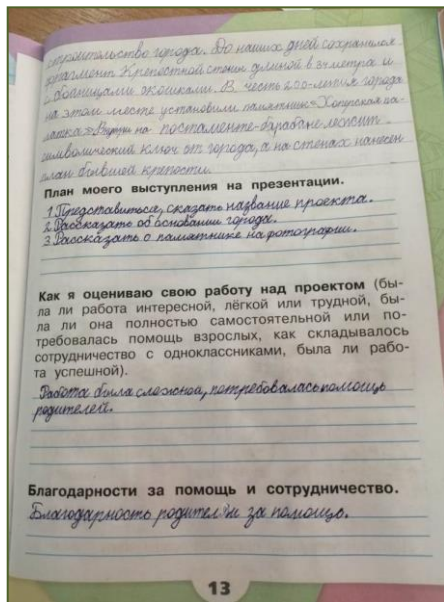 строительство города. До наших дней сохранился
фрагмент Крепостной стены длиной в 34 метра и
с бойницами окошками. В честь 200-летия города
на этом месте установили памятник «Хопёрская па-
латка». Внутри на постаменте-барабане лежит
символический ключ от города, а на стенах нанесён
план бывшей крепости.
План моего выступления на презентации.
1 Представиться, сказать название проекта.
2. Рассказать об основании города.
3 Рассказать о памятнике на фотографии.
Как я оцениваю свою работу над проектом (бы-
ла ли работа интересной, лёгкой или трудной, бы-
ла ли она полностью самостоятельной или по-
требовалась помощь взрослых, как складывалось
сотрудничество с одноклассниками, была ли рабо-
та успешной).
Работа была сложной, потребовалась помощь
родителей.
Благодарности за помощь и сотрудничество.
Благодарность родителям за помощь.
13